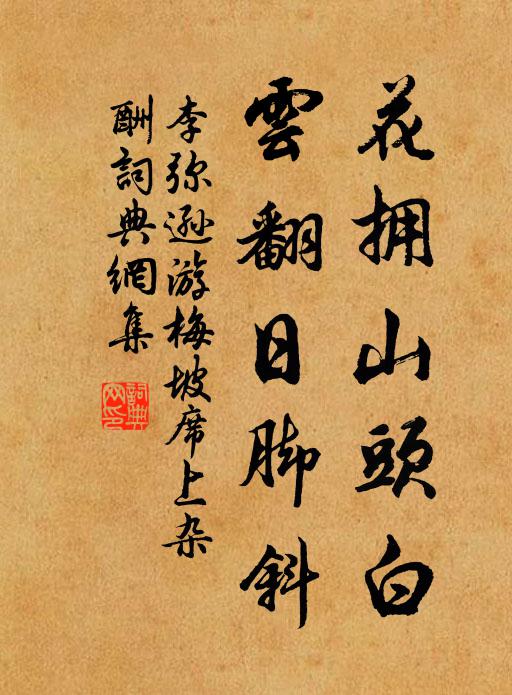 花拥山頭白
雲翻日脚斜
李弥遜游梅坡席上杂
酬詞典網集
詞典网印